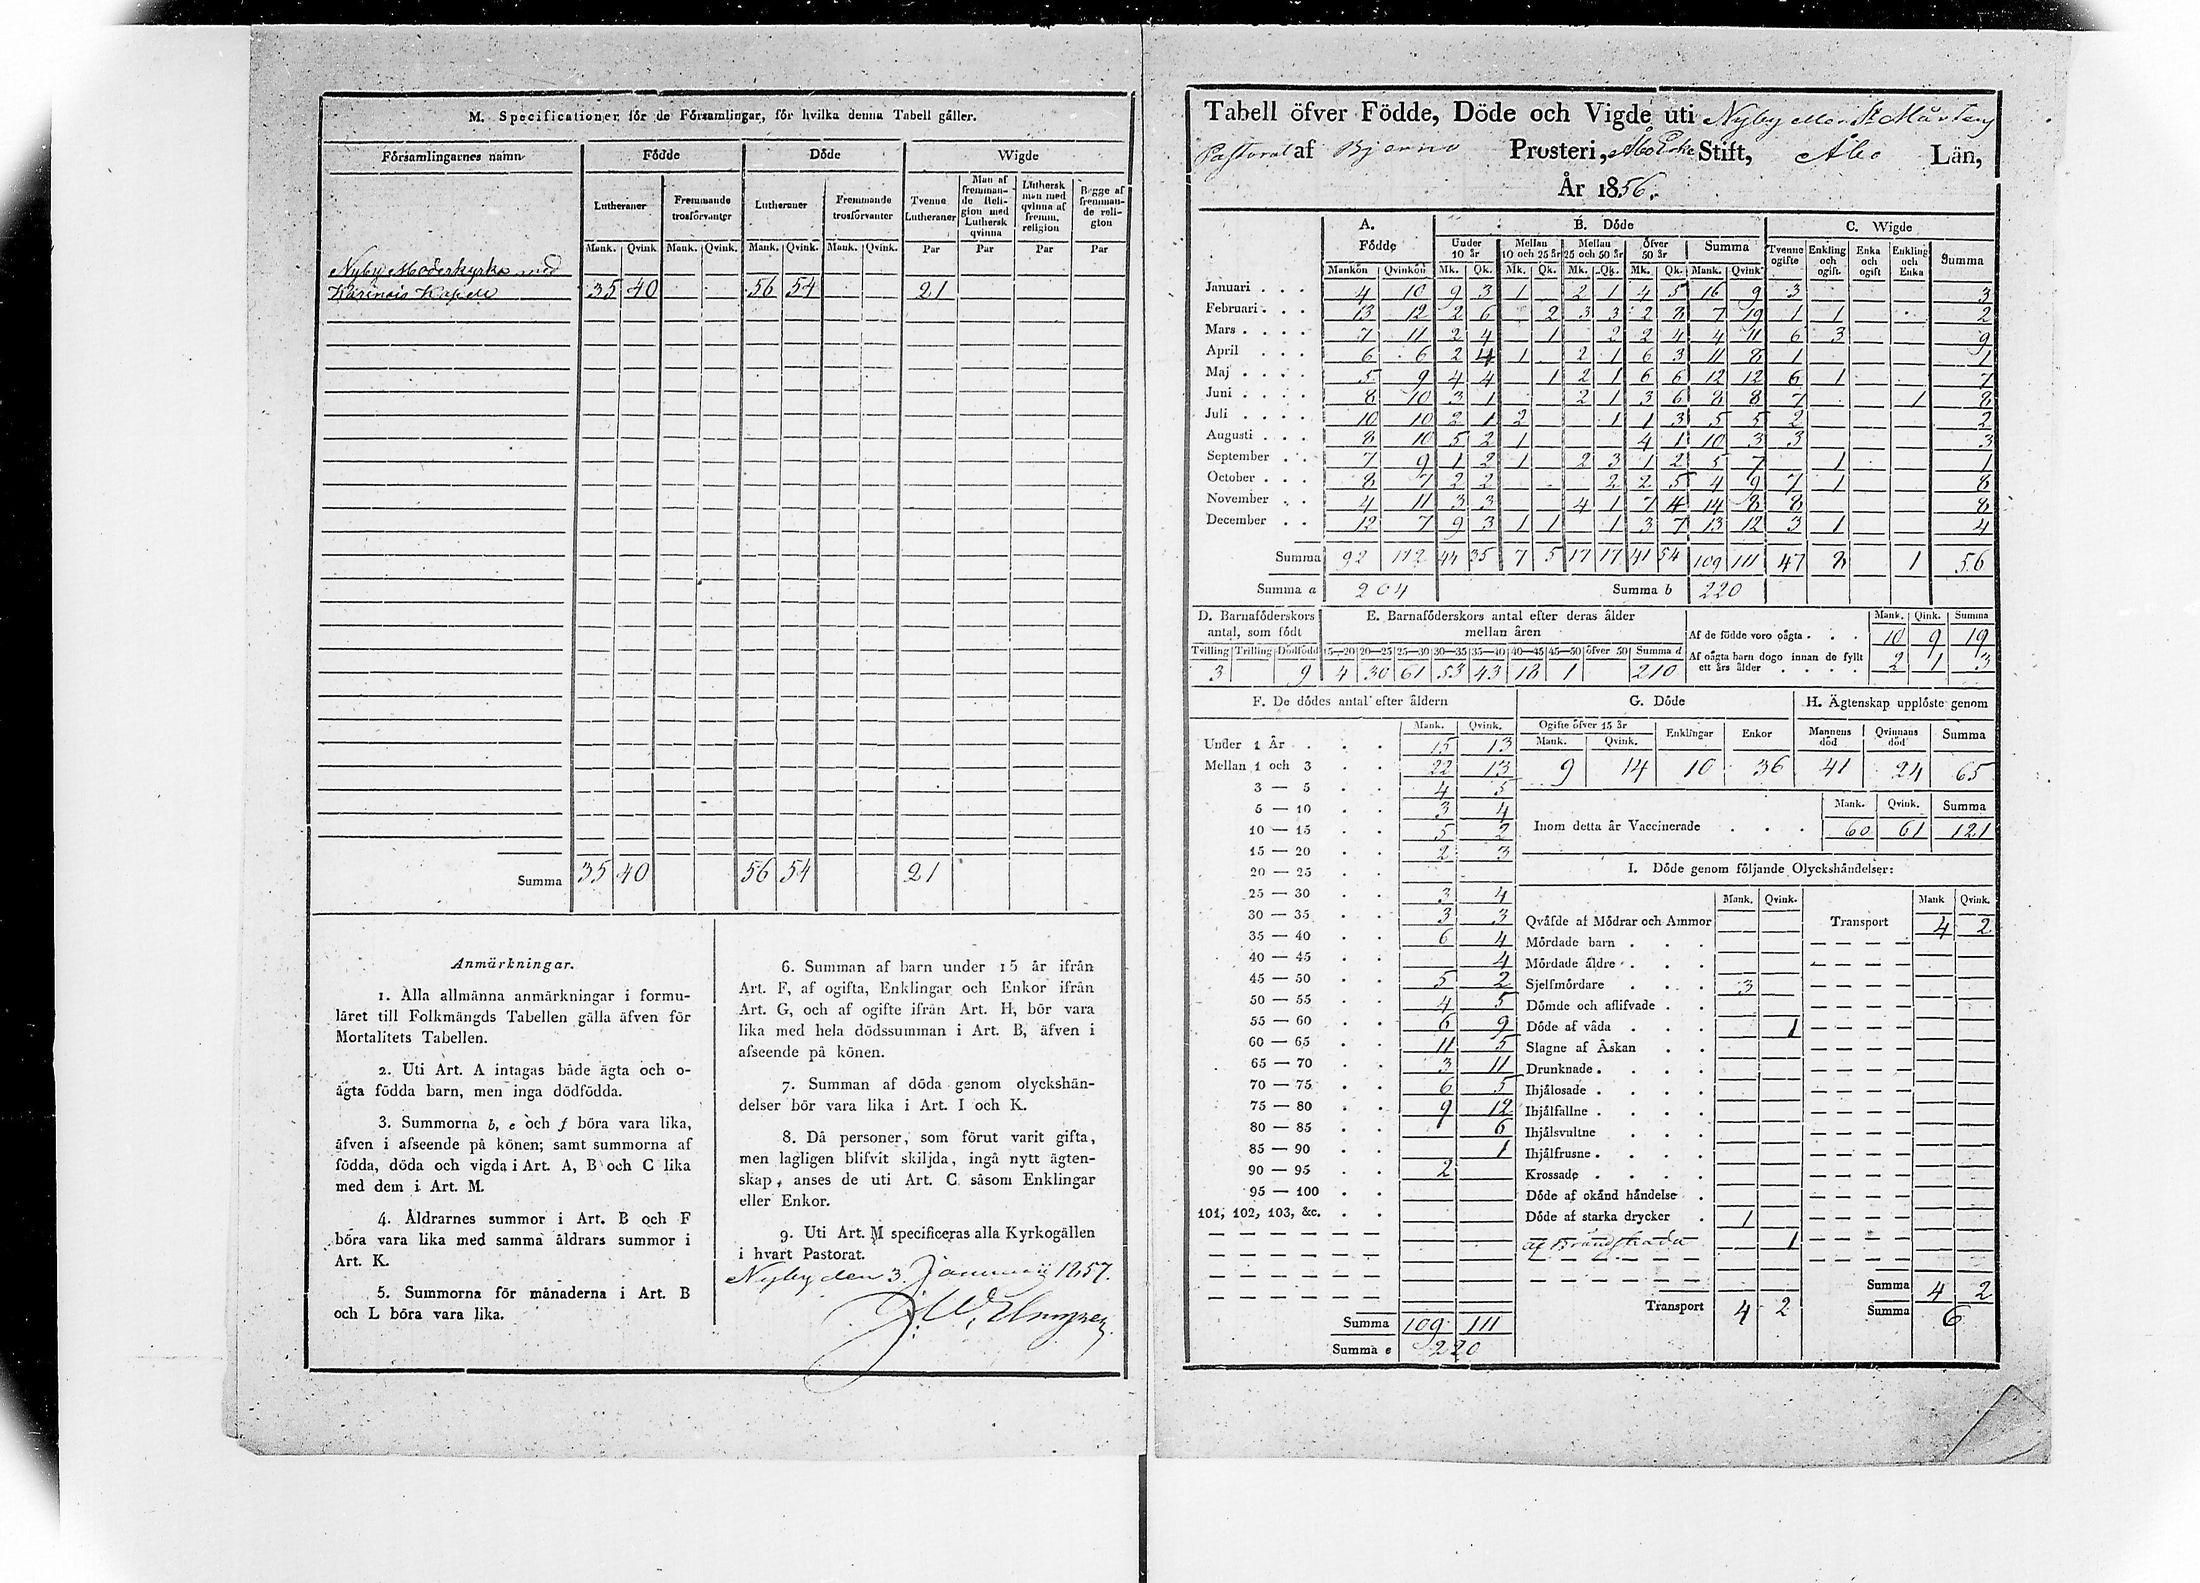 M. Specificationer för de Församlingar, för hvilka denna Tabell gäller.
Församlingarnes namn Födde Döde Wigde
Lutheraner Fremmande trosförvanter Lutheraner Fremmande trosförvanter Tvenne Lutheraner Man af fremmande Religion med Luthersk qvinna Luthersk man med qvinna af fremm. religion Begge af fremmande religion
Mank. Qvink. Mank. Qvink. Mank. Qvink. Mank. Qvink. Par Par Par Par
Nyby Moderkyrka med
Karinais Kapell 35 40 56 54 21
Summa 35 40 56 54 21
Anmärkningar.
1. Alla allmänna anmärkningar i formu-
läret till Folkmängds Tabellen gälla äfven för
Mortalitets Tabellen.
2. Uti Art. A intagas både ägta och o-
ägta födda barn, men inga dödfödda.
3. Summorna b, e och f böra vara lika,
äfven i afseende på könen; samt summorna af
födda, döda och vigda i Art. A, B och C lika
med dem i Art. M.
4. Åldrarnes summor i Art. B och F
böra vara lika med samma åldrars summor i
Art. K.
5. Summorna för månaderna i Art. B
och L böra vara lika.
6. Summan af barn under 15 år ifrån
Art. F, af ogifta, Enklingar och Enkor ifrån
Art. G, och af ogifte ifrån Art. H, bör vara
lika med hela dödssumman i Art. B, äfven i
afseende på könen.
7. Summan af döda genom olyckshän-
delser bör vara lika i Art. I och K.
8. Då personer, som förut varit gifta,
men lagligen blifvit skiljda, ingå nytt ägten-
skap, anses de uti Art. C såsom Enklingar
eller Enkor.
9. Uti Art. M specificeras alla Kyrkogällen
i hvart Pastorat.
Nyby den 3. Januarii 1857.
Tabell öfver Födde, Döde och Vigde uti Nyby eller St Mårtens
Pastorat af Bjerno Prosteri, Åbo Stift, Åbo Län,
År 1856.
A. Födde B. Döde C. Wigde
Under 10 år Mellan 10 och 25 år Mellan 25 och 50 år Öfver 50 år Summa Tvenne ogifte Enkling och ogift. Enka och ogift Enkling och Enka Summa
Mankön Qvinkön Mk. Qk. Mk. Qk. Mk. Qk. Mk. Qk. Mank. Qvink.
Januari 4 10 9 3 1 2 1 4 5 16 9 3 3
Februari 13 12 2 6 2 3 3 2 8 7 19 1 1 2
Mars 7 11 2 4 1 2 2 4 4 11 6 3 9
April 6 6 2 4 1 2 1 6 3 11 8 1 1
Maj 5 9 4 4 1 2 1 6 6 12 12 6 1 7
Juni 8 10 3 1 2 1 3 6 8 8 7 1 8
Juli 10 10 2 1 2 1 1 3 5 5 2 2
Augusti 8 10 5 2 1 4 1 10 3 3 3
September 7 9 1 2 1 2 3 1 2 5 7 1 1
October 8 7 2 2 2 2 5 4 9 7 1 8
November 4 11 3 3 4 1 7 4 14 8 8 8
December 12 7 9 3 1 1 1 3 7 13 12 3 1 4
Summa 92 112 44 35 7 5 17 17 41 54 109 111 47 8 1 56
Summa a 204 Summa b 220
D. Barnaföderskors antal, som födt
Tvilling Trilling Dödfödd
3 9
E. Barnaföderskors antal efter deras ålder mellan åren
15—20 20—25 25—30 30—35 35—40 40—45 45—50 öfver 50 Summa d
4 30 61 53 43 18 1 210
Mank. Qink. Summa
Af de födde voro oägta 10 9 19
Af oägta barn dogo innan de fyllt ett års ålder 2 1 3
F. De dödes antal efter åldern
Mank. Qvink.
Under 1 År 15 13
Mellan 1 och 3 22 13
3 — 5 4 5
5 — 10 3 4
10 — 15 5 2
15 — 20 2 3
20 — 25
25 — 30 3 4
30 — 35 3 3
35 — 40 6 4
40 — 45 4
45 — 50 5 2
50 — 55 4 5
55 — 60 6 9
60 — 65 11 5
65 — 70 3 11
70 — 75 6 5
75 — 80 9 12
80 — 85 6
85 — 90 1
90 — 95 2
95 — 100
101, 102, 103, &c.
Summa 109 111
Summa e 220
G. Döde
Ogifte öfver 15 år Enklingar Enkor
Mank. Qvink.
9 14 10 36
H. Ägtenskap upplöste genom
Mannens död Qvinnans död Summa
41 24 65
Mank. Qvink. Summa
Inom detta år Vaccinerade 60 61 121
I. Döde genom följande Olyckshändelser:
Mank. Qvink. Mank Qvink.
Qväfde af Mödrar och Ammor Transport 4 2
Mördade barn
Mördade äldre
Sjelfmördare 3
Dömde och aflifvade
Döde af våda 1
Slagne af Åskan
Drunknade
Ihjälosade
Ihjälfallne
Ihjälsvultne
Ihjälfrusne
Krossade
Döde af okänd händelse
Döde af starka drycker 1
af Brandskada 1
Summa 4 2
Transport 4 2 Summa 6